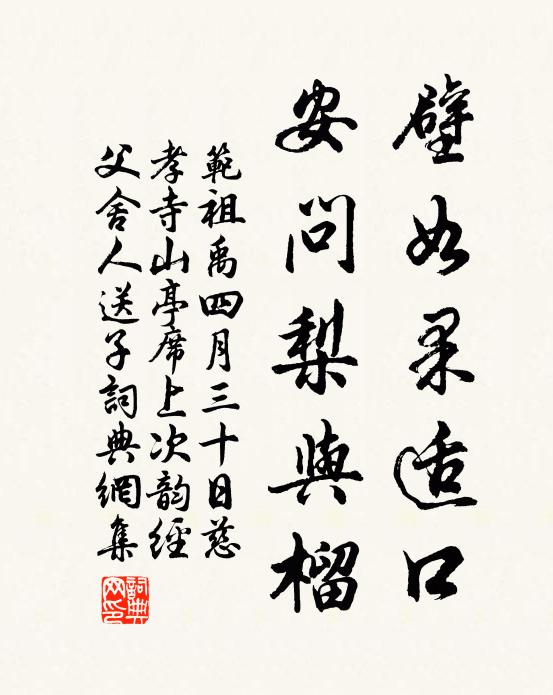 壁如果适口
安問梨與榴
範祖禹四月三十日慈
孝寺山亭席上次韵經
父舍人送子詞典網集
詞典
网印